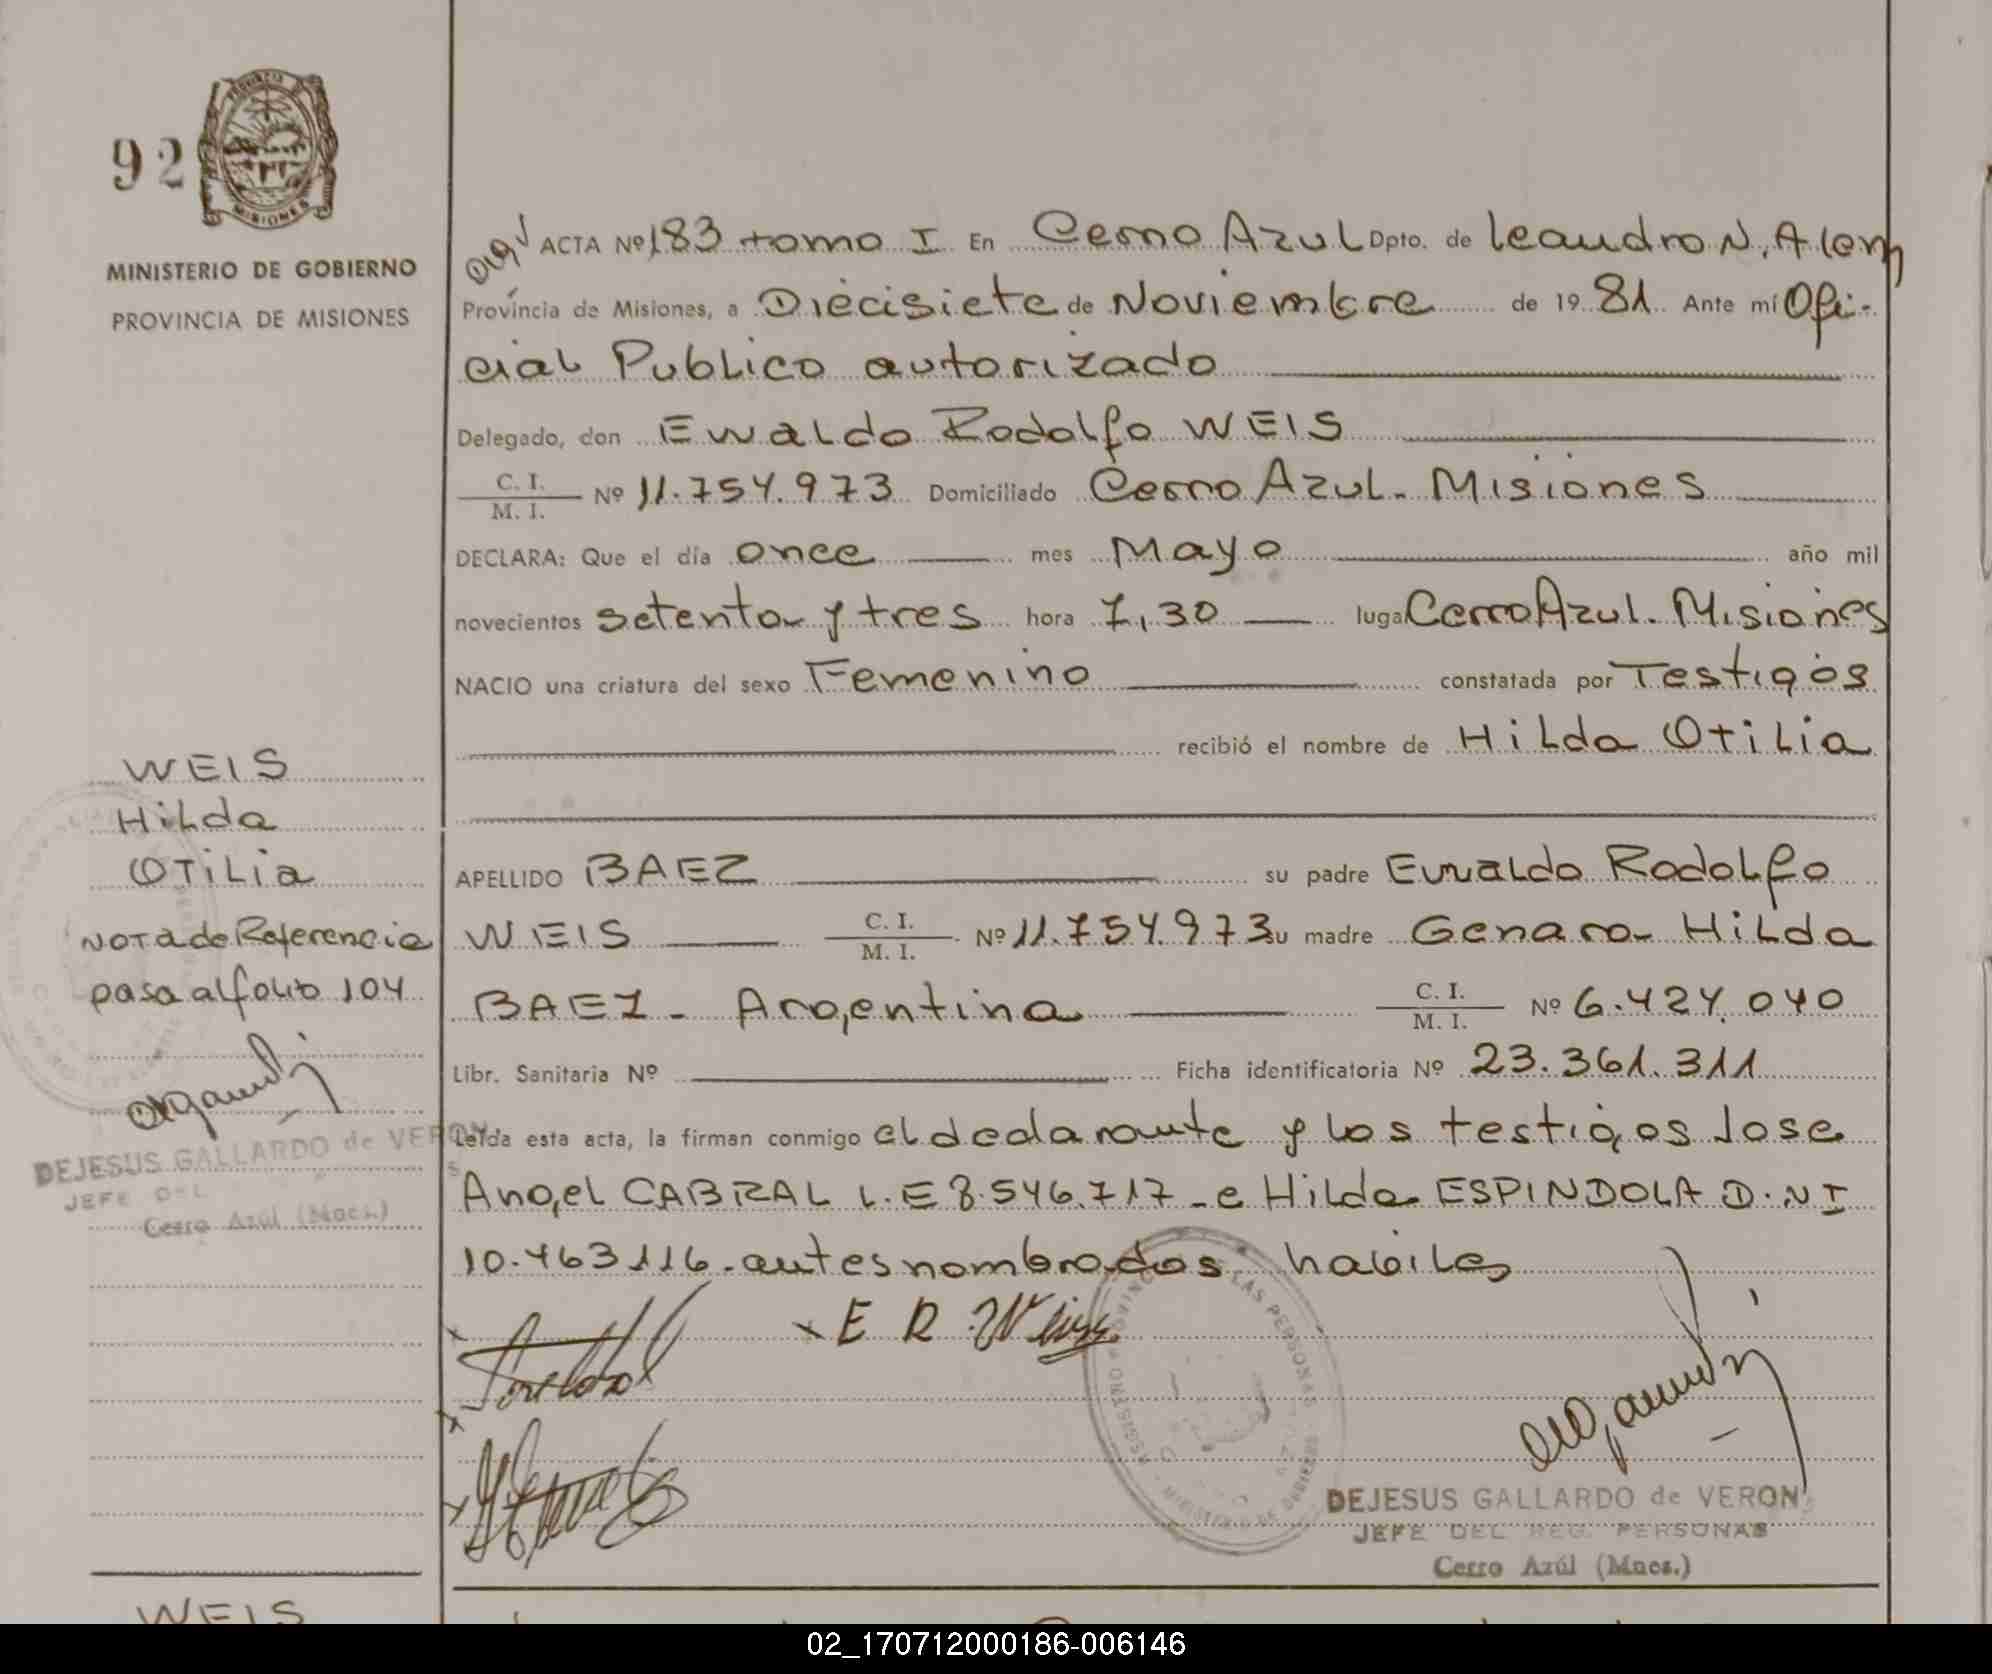 92
PROVINCIA DE
MISIONES
MINISTERIO DE GOBIERNO
PROVINCIA DE MISIONES
ACTA Nº 183 tomo I En Cerro Azul Dpto. de Leandro N. Alem
Província de Misiones, a Diecisiete de Noviembre de 19 81 Ante mí Ofi-
cial Publico autorizado
Delegado, don Ewaldo Rodolfo WEIS
C. I.
M. I. Nº 11.754.973 Domiciliado Cerro Azul. Misiones
DECLARA: Que el día once mes Mayo año mil
novecientos setenta y tres hora 7,30 luga Cerro Azul. Misiones
NACIO una criatura del sexo Femenino constatada por Testigos
recibió el nombre de Hilda Otilia
APELLIDO BAEZ su padre Ewaldo Rodolfo
WEIS C. I. M. I. Nº 11.754.973 su madre Genara Hilda
BAEZ - Argentina C. I. M. I. Nº 6.424.040
Libr. Sanitaria Nº Ficha identificatoria Nº 23.361.311
Leída esta acta, la firman conmigo el declarante y los testigos Jose
Angel CABRAL L.E 8.546.717 - e Hilda ESPINDOLA D.N I
10.463116. antes nombrados habiles
E R Weiss
DEJESUS GALLARDO de VERON
JEFE DEL REG. PERSONAS
Cerro Azúl (Mnes.)
WEIS
Hilda
OTiLia
Nota de Referencia
pasa al folio 104
DEJESUS GALLARDO de VERON
JEFE DEL
Cerro Azúl (Mnes.)
WEIS
02_170712000186-006146